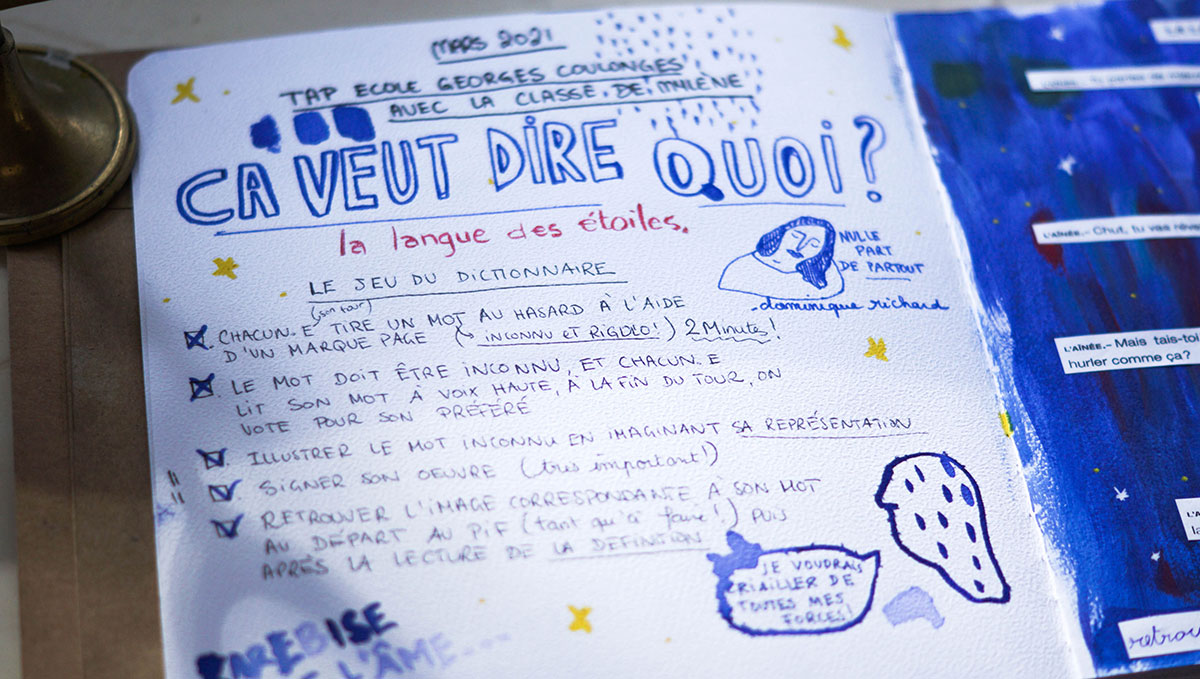 MARS 2021
TAP ECOLE GEORGES COULONGES
AVEC LA CLASSE DE MYLÈNE
CA VEUT DIRE QUOI?
la langue des étoiles.
NULLE
PART
DE PARTOUT
-dominique richard
LE JEU DU DICTIONNAIRE
(son tour)
CHACUN.E TIRE UN MOT AU HASARD À L'AIDE
D'UN MARQUE PAGE (INCONNU ET RIGOLO!) 2 Minutes!
LE MOT DOIT ÊTRE INCONNU, ET CHACUN.E
LIT SON MOT À VOIX HAUTE, À LA FIN DU TOUR, ON
VOTE POUR SON PRÉFÉRÉ
ILLUSTRER LE MOT INCONNU EN IMAGINANT SA REPRÉSENTATION
SIGNER SON OEUVRE (très important!)
RETROUVER L'IMAGE CORRESPONDANTE À SON MOT
AU DÉPART AU PIF (tant qu'à faire!) PUIS
APRÈS LA LECTURE DE LA DÉFINTION
JE VOUDRAIS
CRIAILLER DE
TOUTES MES
FORCES!
BAREBISE
L'ÂME...
L'AÎNÉE.- Chut, tu vas
L'AÎNÉE.- Mais tais-toi
hurler comme ça?